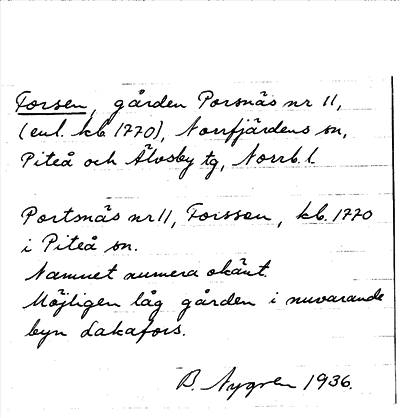 Forsen, gården Porsnäs nr 11,
(enl. kb 1770), Norrfjärdens sn,
Piteå och Älvsby tg, Norrb. l.
Portsnäs nr 11, Forssen, kb. 1770
i Piteå sn.
Namnet numera okänt.
Möjligen låg gården i nuvarande
byn Lakafors.
B. Nygren 1936.